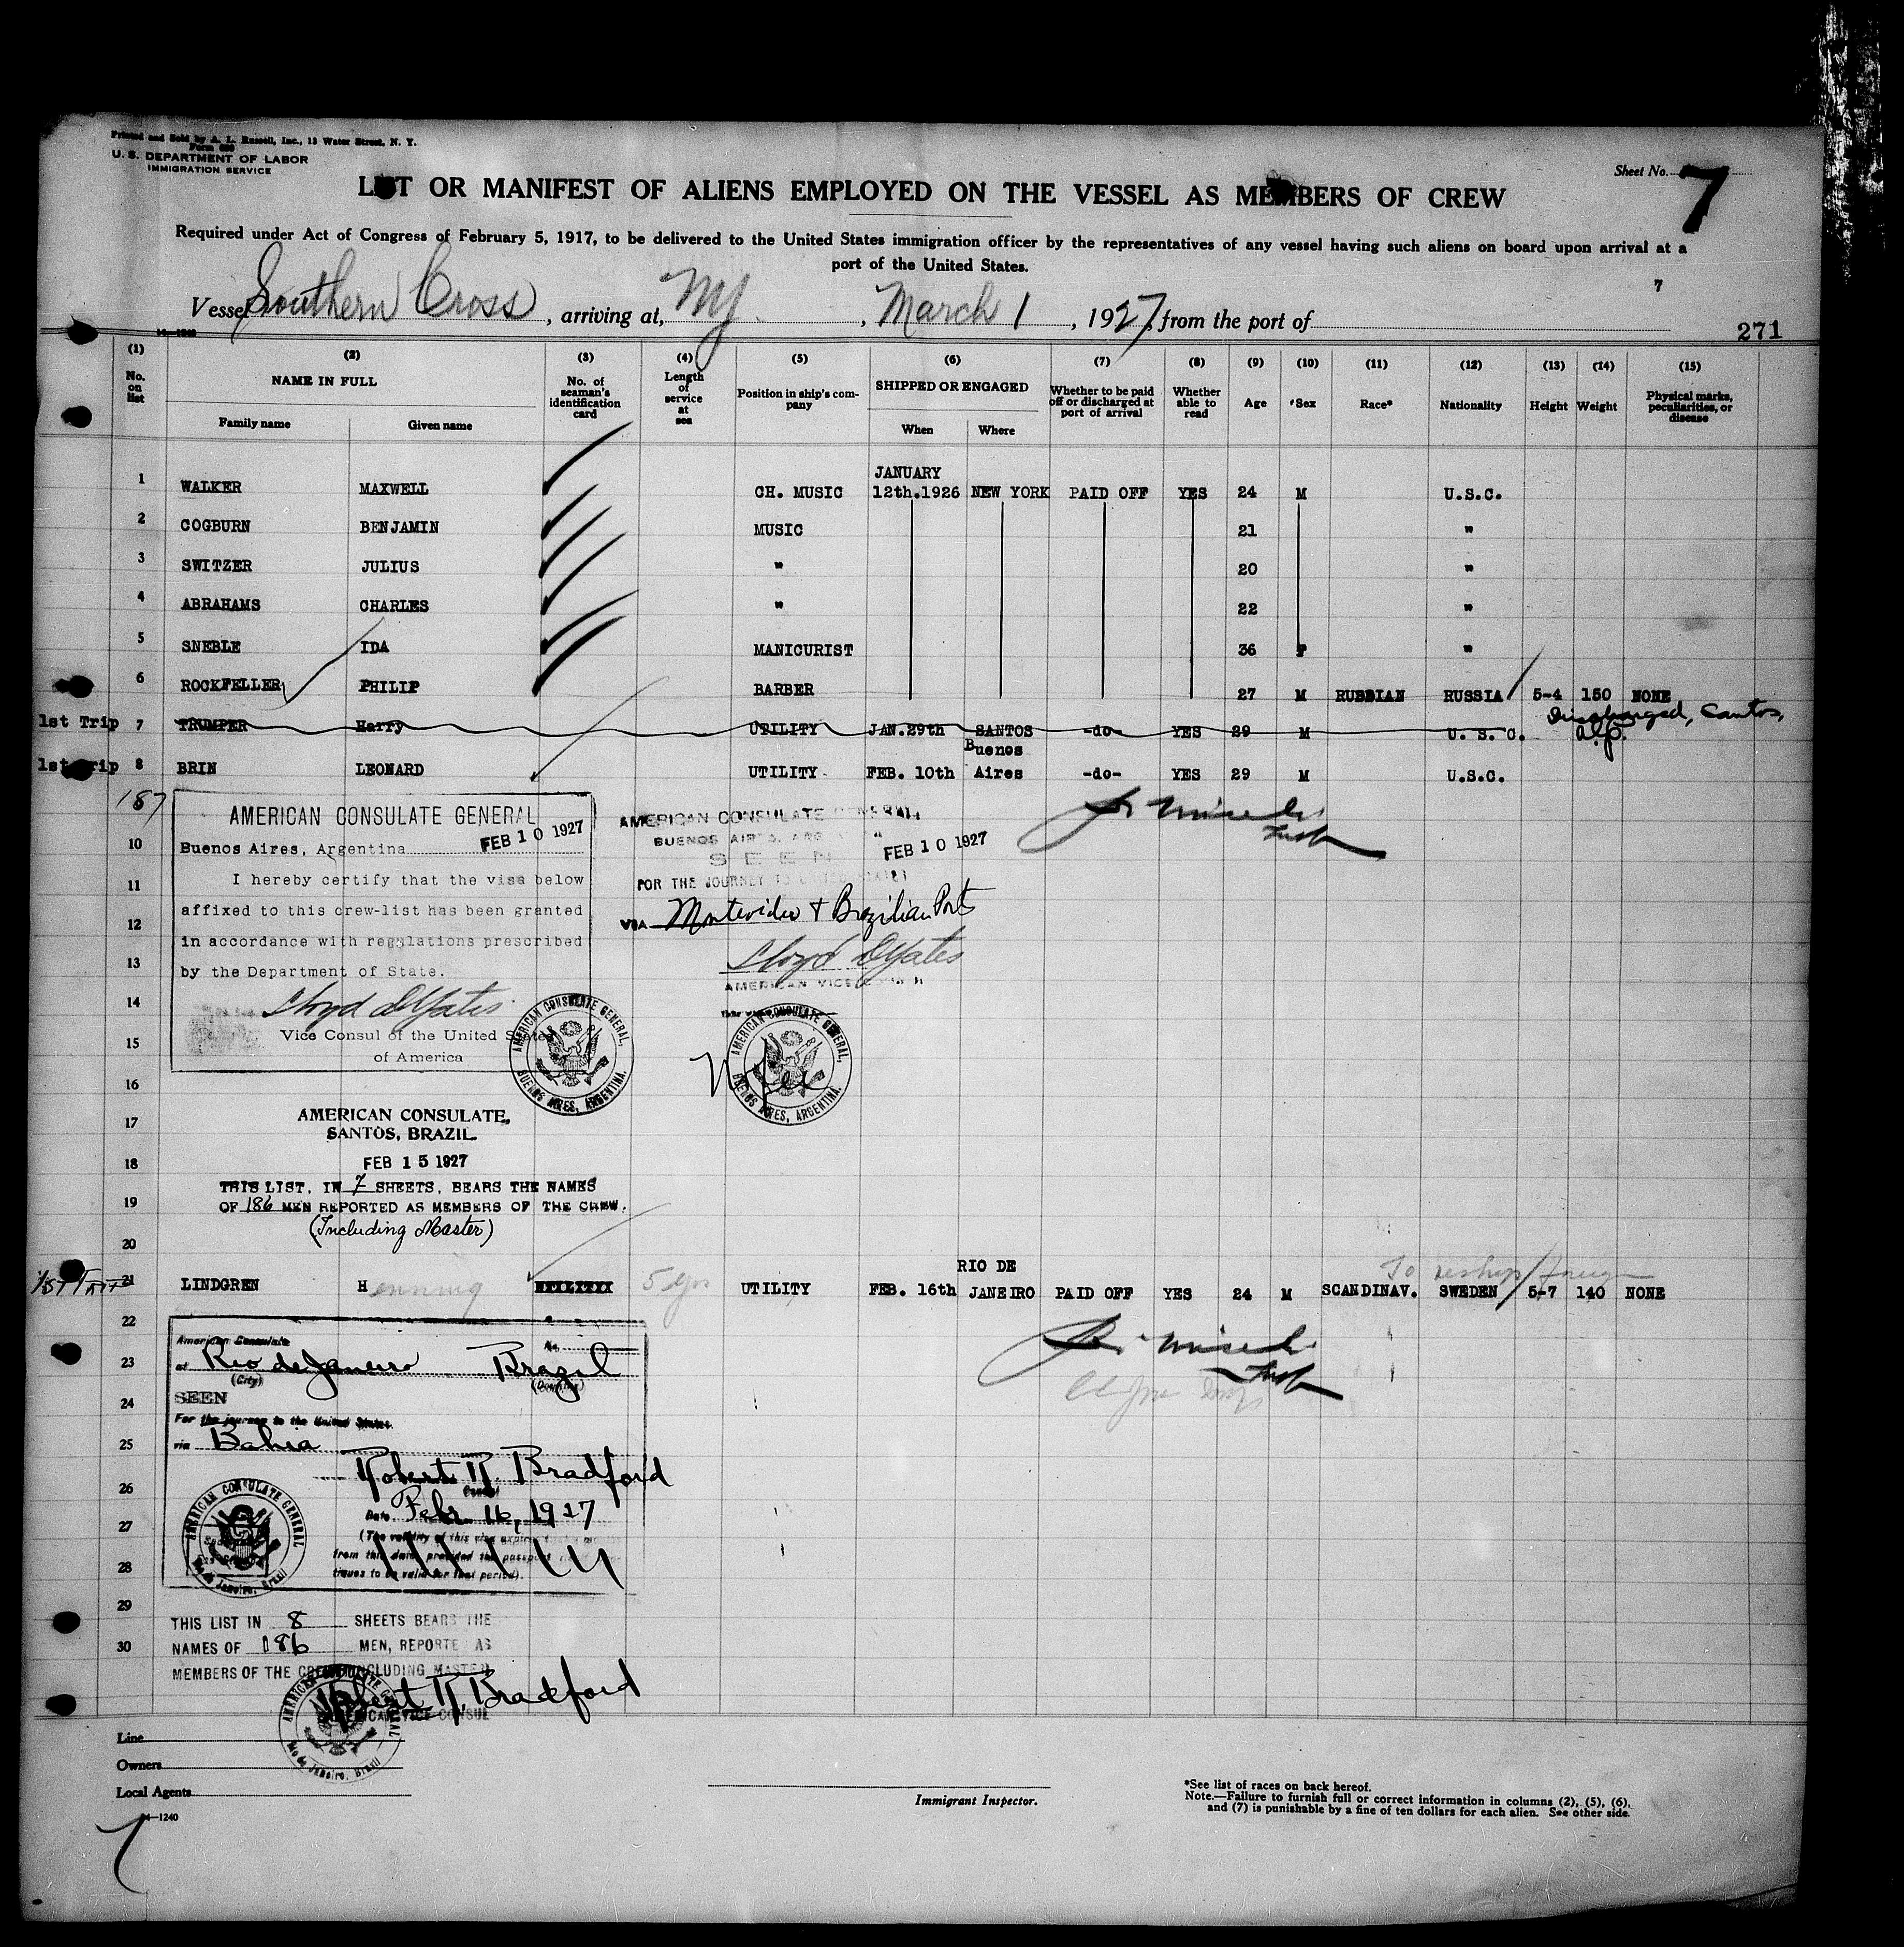 Printed and Sold by A. L. Russell, Inc., 13 Water Street, N. Y.
Form 689
U. S. DEPARTMENT OF LABOR
IMMIGRATION SERVICE
Sheet No. 7
LIST OR MANIFEST OF ALIENS EMPLOYED ON THE VESSEL AS MEMBERS OF CREW
Required under Act of Congress of February 5, 1917, to be delivered to the United States immigration officer by the representatives of any vessel having such aliens on board upon arrival at a
port of the United States.
7
Vessel Southern Cross, arriving at, NY., March 1, 1927, from the port of
14—1240
271
(1) (2) (3) (4) (5) (6) (7) (8) (9) (10) (11) (12) (13) (14) (15)
No. on list NAME IN FULL No. of seaman's identification card Length of service at sea Position in ship's company SHIPPED OR ENGAGED Whether to be paid off or discharged at port of arrival Whether able to read Age Sex Race* Nationality Height Weight Physical marks, peculiarities, or disease
Family name Given name When Where
JANUARY
1 WALKER MAXWELL CH. MUSIC 12th.1926 NEW YORK PAID OFF YES 24 M U.S.C.
2 COGBURN BENJAMIN MUSIC 21 "
3 SWITZER JULIUS " 20 "
4 ABRAHAMS CHARLES " 22 "
5 SNEBLE IDA MANICURIST 36 F "
6 ROCKFELLER PHILIP BARBER 27 M RUSSIAN RUSSIA 5-4 150 NONE
Discharged, Santos,
1st Trip 7 TRUMPER Harry UTILITY JAN.29th SANTOS -do- YES 29 M U. S. C.
Buenos
1st Trip 8 BRIN LEONARD UTILITY FEB. 10th Aires -do- YES 29 M U.S.C.
187
AMERICAN CONSULATE GENERAL
FEB 10 1927
Buenos Aires, Argentina
I hereby certify that the visa below
affixed to this crew-list has been granted
in accordance with regulations prescribed
by the Department of State.
Lloyd D Yates
Vice Consul of the United States
of America
AMERICAN CONSULATE GENERAL, BUENOS AIRES, ARGENTINA.
AMERICAN CONSULATE GENERAL,
BUENOS AIRES, ARGENTINA
SEEN
FEB 10 1927
FOR THE JOURNEY TO UNITED STATES
VIA Montevideo + Brazilian Ports
Lloyd D Yates
AMERICAN VICE CONSUL
AMERICAN CONSULATE GENERAL, BUENOS AIRES, ARGENTINA.
10
11
12
13
14
15
16
17
18
19
20
AMERICAN CONSULATE,
SANTOS, BRAZIL.
FEB 15 1927
THIS LIST, IN 7 SHEETS, BEARS THE NAMES
OF 186 MEN REPORTED AS MEMBERS OF THE CREW.
(Including Master)
RIO DE
1st Trip 21 LINDGREN Henning UTILITYX 5 yrs UTILITY FEB. 16th JANEIRO PAID OFF YES 24 M SCANDINAV. SWEDEN 5-7 140 NONE
To reship foreign
22
23
24
25
26
27
28
29
30
American Consulate
No.
at Rio de Janeiro Brazil
(City) (Country)
SEEN
For the journey to the United States.
via Bahia
Robert R. Bradford
Consul
Date Feb. 16, 1927
(The validity of this visa expires
from this date provided the passport
tinues to be valid for that period).
AMERICAN CONSULATE GENERAL Rio de Janeiro, Brazil
THIS LIST IN 8 SHEETS BEARS THE
NAMES OF 186 MEN, REPORTED AS
MEMBERS OF THE CREW INCLUDING MASTER
Robert R. Bradford
AMERICAN VICE CONSUL
AMERICAN CONSULATE GENERAL Rio de Janeiro, Brazil
Line
Owners
Local Agents
14—1240
7
Immigrant Inspector.
*See list of races on back hereof.
Note.—Failure to furnish full or correct information in columns (2), (5), (6),
and (7) is punishable by a fine of ten dollars for each alien. See other side.